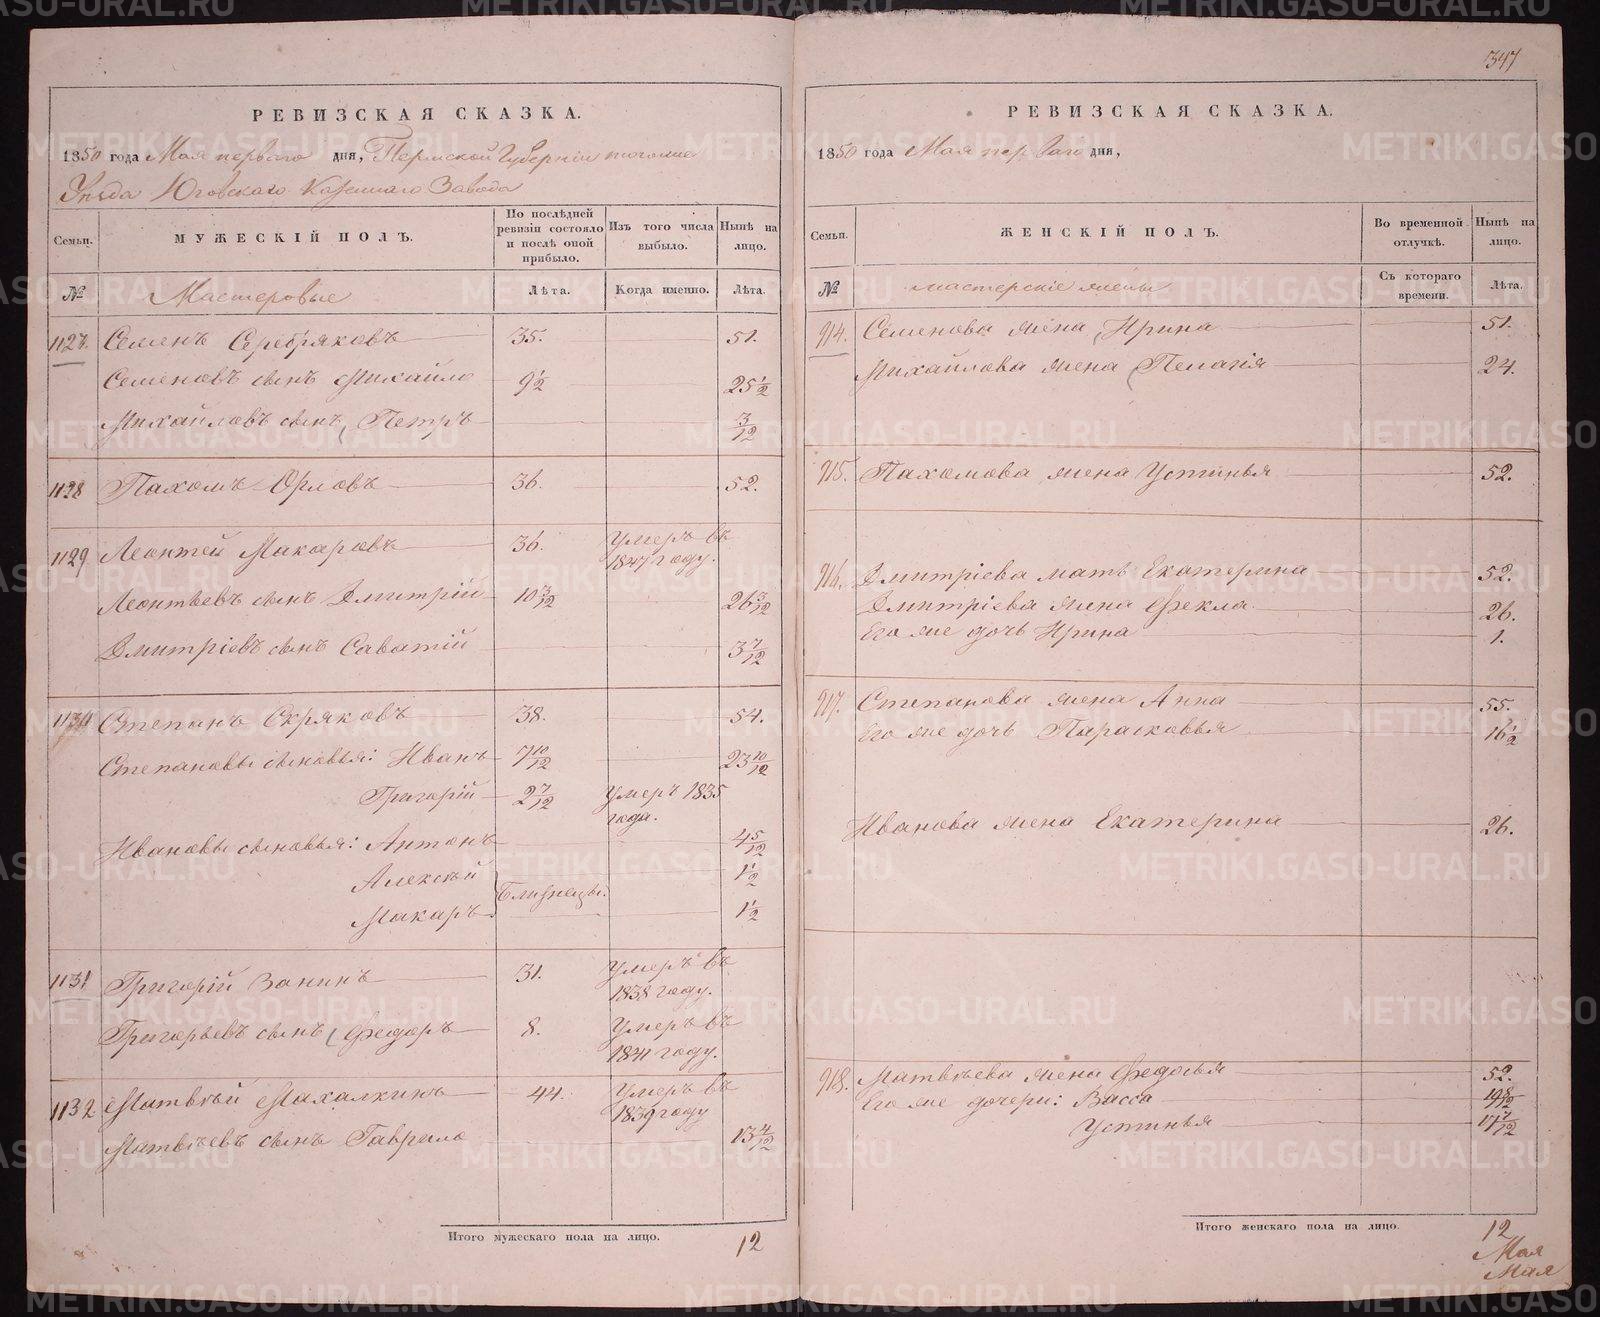 347
РЕВИЗСКАЯ СКАЗКА.
1850 года Мая перваго дня, Пермской Губернии тогоже
Уѣзда Юговскаго Казеннаго Завода
Семьи.
МУЖЕСКІЙ ПОЛЪ.
По послѣдней ревизіи состояло и послѣ оной прибыло.
Изъ того числа выбыло.
Нынѣ на лицо.
№ Мастеровые Лѣта. Когда именно. Лѣта.
1127. Семенъ Серебряковъ 35. 51.
Семеновъ сынъ Михайло 9 1/2 25 1/2
Михайловъ сынъ Петръ 3/12
1128 Пахомъ Орловъ 36. 52.
1129 Леонтей Макаровъ 36. Умеръ въ 1847 году.
Леонтьевъ сынъ Дмитрій 10 3/12 26 3/12
Дмитріевъ сынъ Саватій 3 7/12
1130 Степанъ Скряковъ 38. 54.
Степановы сыновья: Иванъ 7 10/12 23 10/12
Григорій 2 7/12 Умеръ 1835 года.
Ивановы сыновья: Антонъ 4 5/12
Алексѣй 1 1/2
Близнецы.
Макаръ 1 1/2
1131 Григорій Занинъ 31. Умеръ въ 1838 году.
Григорьевъ сынъ Федоръ 8. Умеръ въ 1841 году.
1132 Матвѣй Махалкинъ 44. Умеръ въ 1839 году
Матвѣевъ сынъ Гаврило 13 4/12
Итого мужескаго пола на лицо. 12
РЕВИЗСКАЯ СКАЗКА.
1850 года Мая перваго дня,
Семьи.
ЖЕНСКІЙ ПОЛЪ.
Во временной отлучкѣ.
Нынѣ на лицо.
№ мастерскіе жены Съ котораго времени. Лѣта.
914. Семенова жена Ирина 51.
Михайлова жена Пелагія 24.
915. Пахомова жена Устинья 52.
916. Дмитріева мать Екатерина 52.
Дмитріева жена Фекла 26.
Его же дочь Ирина 1.
917. Степанова жена Анна 55.
Его же дочь Парасковья 16 1/2
Иванова жена Екатерина 26.
918. Матвѣева жена Федосья 52.
Его же дочери: Васса 19 8/12
Устинья 17 7/12
Итого женскаго пола на лицо. 12
Мая
Мая
METRIKI.GASO-URAL.RU